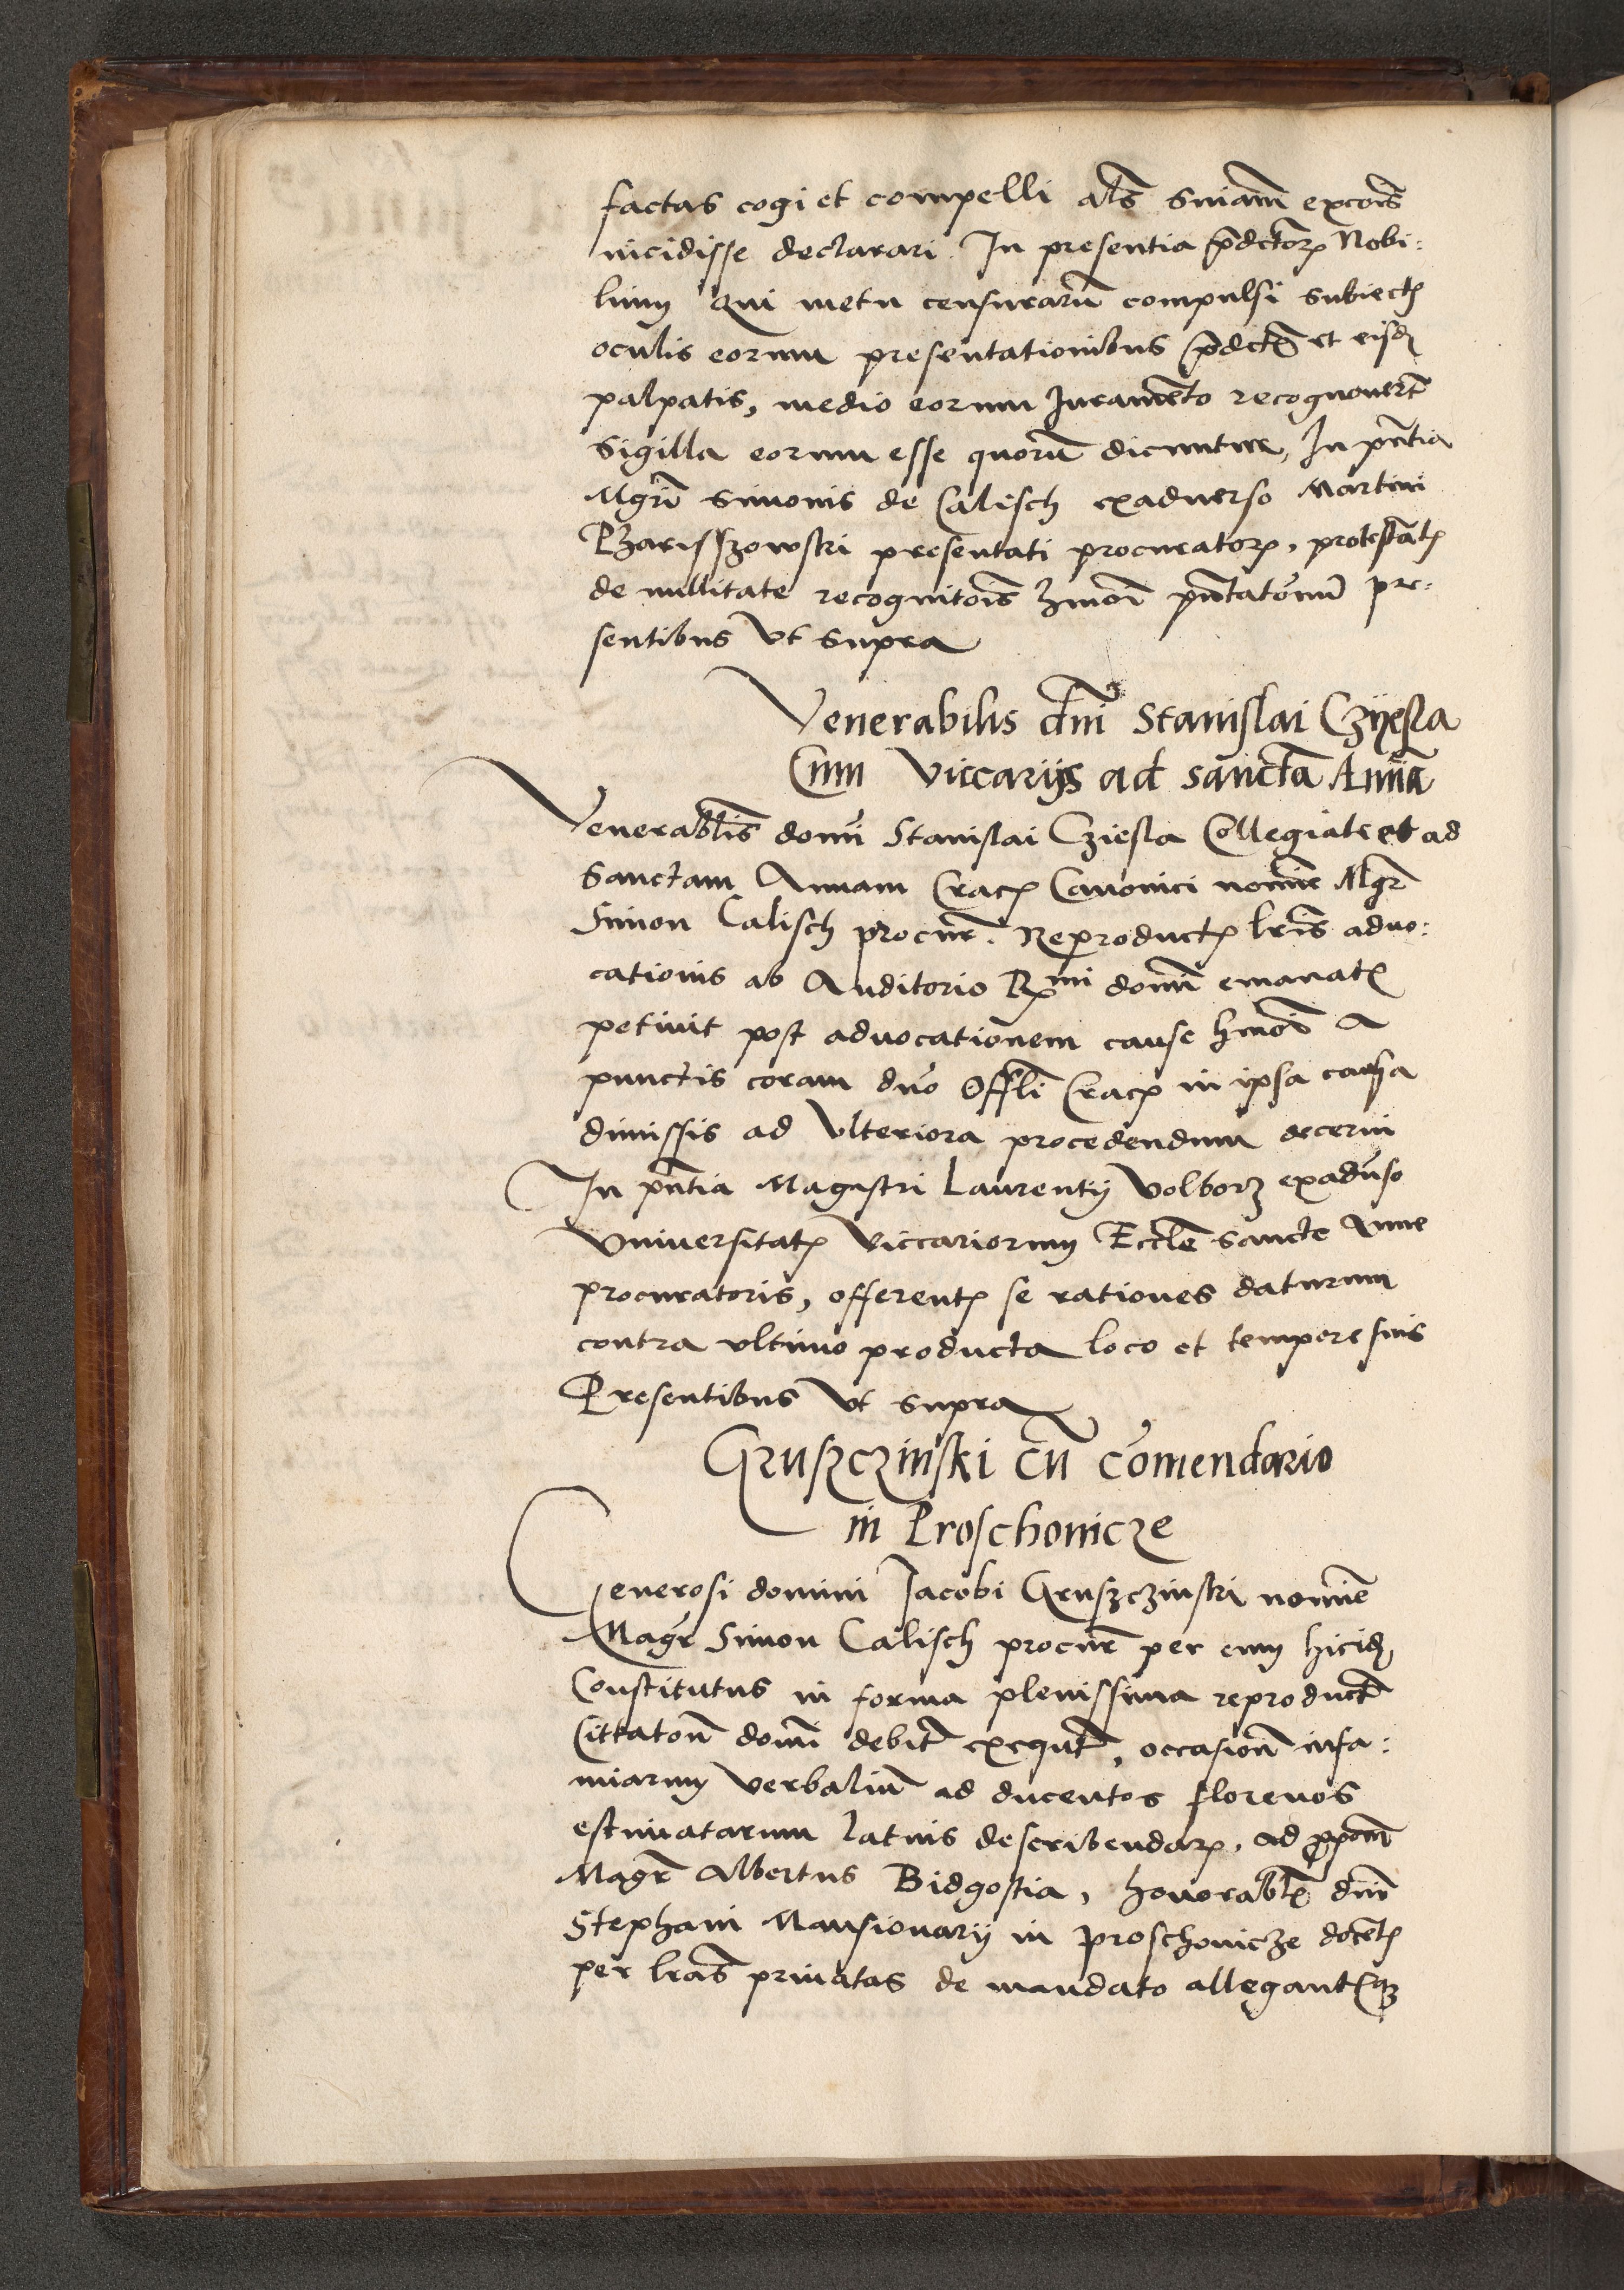 factas cogi et compelli als sniam excois
incidisse declarari. In presentia pdctorꝝ Nobi:
lium Qui metu censurarū compulsi subiectꝭ
oculis eorum presentationibus pdctꝭ et eisdꝫ
palpatis, medio eorum Juramēto recognouerūt
Sigilla eorum esse quorū dicuntur, In pn̄tia
Mgri Simonis de Calisch exaduerso Martini
Pharisszowski presentati procuratorꝭ, protestātꝭ
de nullitate recognitōis hmōi pn̄tatōnū pre:
sentibus Vt supra
Venerabilis dni Stanislai Czÿesla
Cum Viccarijs ad sanctā Annā
Venerablis domi Stanislai Cziesla Collegiate et ad
Sanctam Annam Cracꝭ Canonici nomine Mgr
Simon Calisch procur. Reproductꝭ lris aduo:
cationis ab Auditorio Rmi domi emanatꝭ
petiuit post aduocationem cause hmōi a
punctis coram dno Offli Cracꝭ in ipsa causa
dimissis ad Vlteriora procedendum decerni
In pn̄tia Magistri Laurentij Volborz exaduso
Vniuersitatꝭ Viccariorum Eccle sancte Anne
procuratoris, offerentꝭ se rationes daturum
contra vltimo producta loco et tempore suis
Presentibus Vt supra
Gruszczinski cū comendario
in Proschonicze
Generosi domini Jacobi Gruszczinski nomine
Magr Simon Calisch procur per eum hicidꝫ
Constitutus in forma plenissima reproductꝭ
Cittatōn domi debitꝭ exequtꝭ, occasiōn infa:
miarum Verbaliū ad ducentos florenos
estimatarum latius describendarꝝ, ad pponē
Magr Albertus Bidgostia, honorablꝭ dni
Stephani Mansionarij in Proschonicze docētꝭ
per lras priuatas de mandato allegantꝭqꝫ